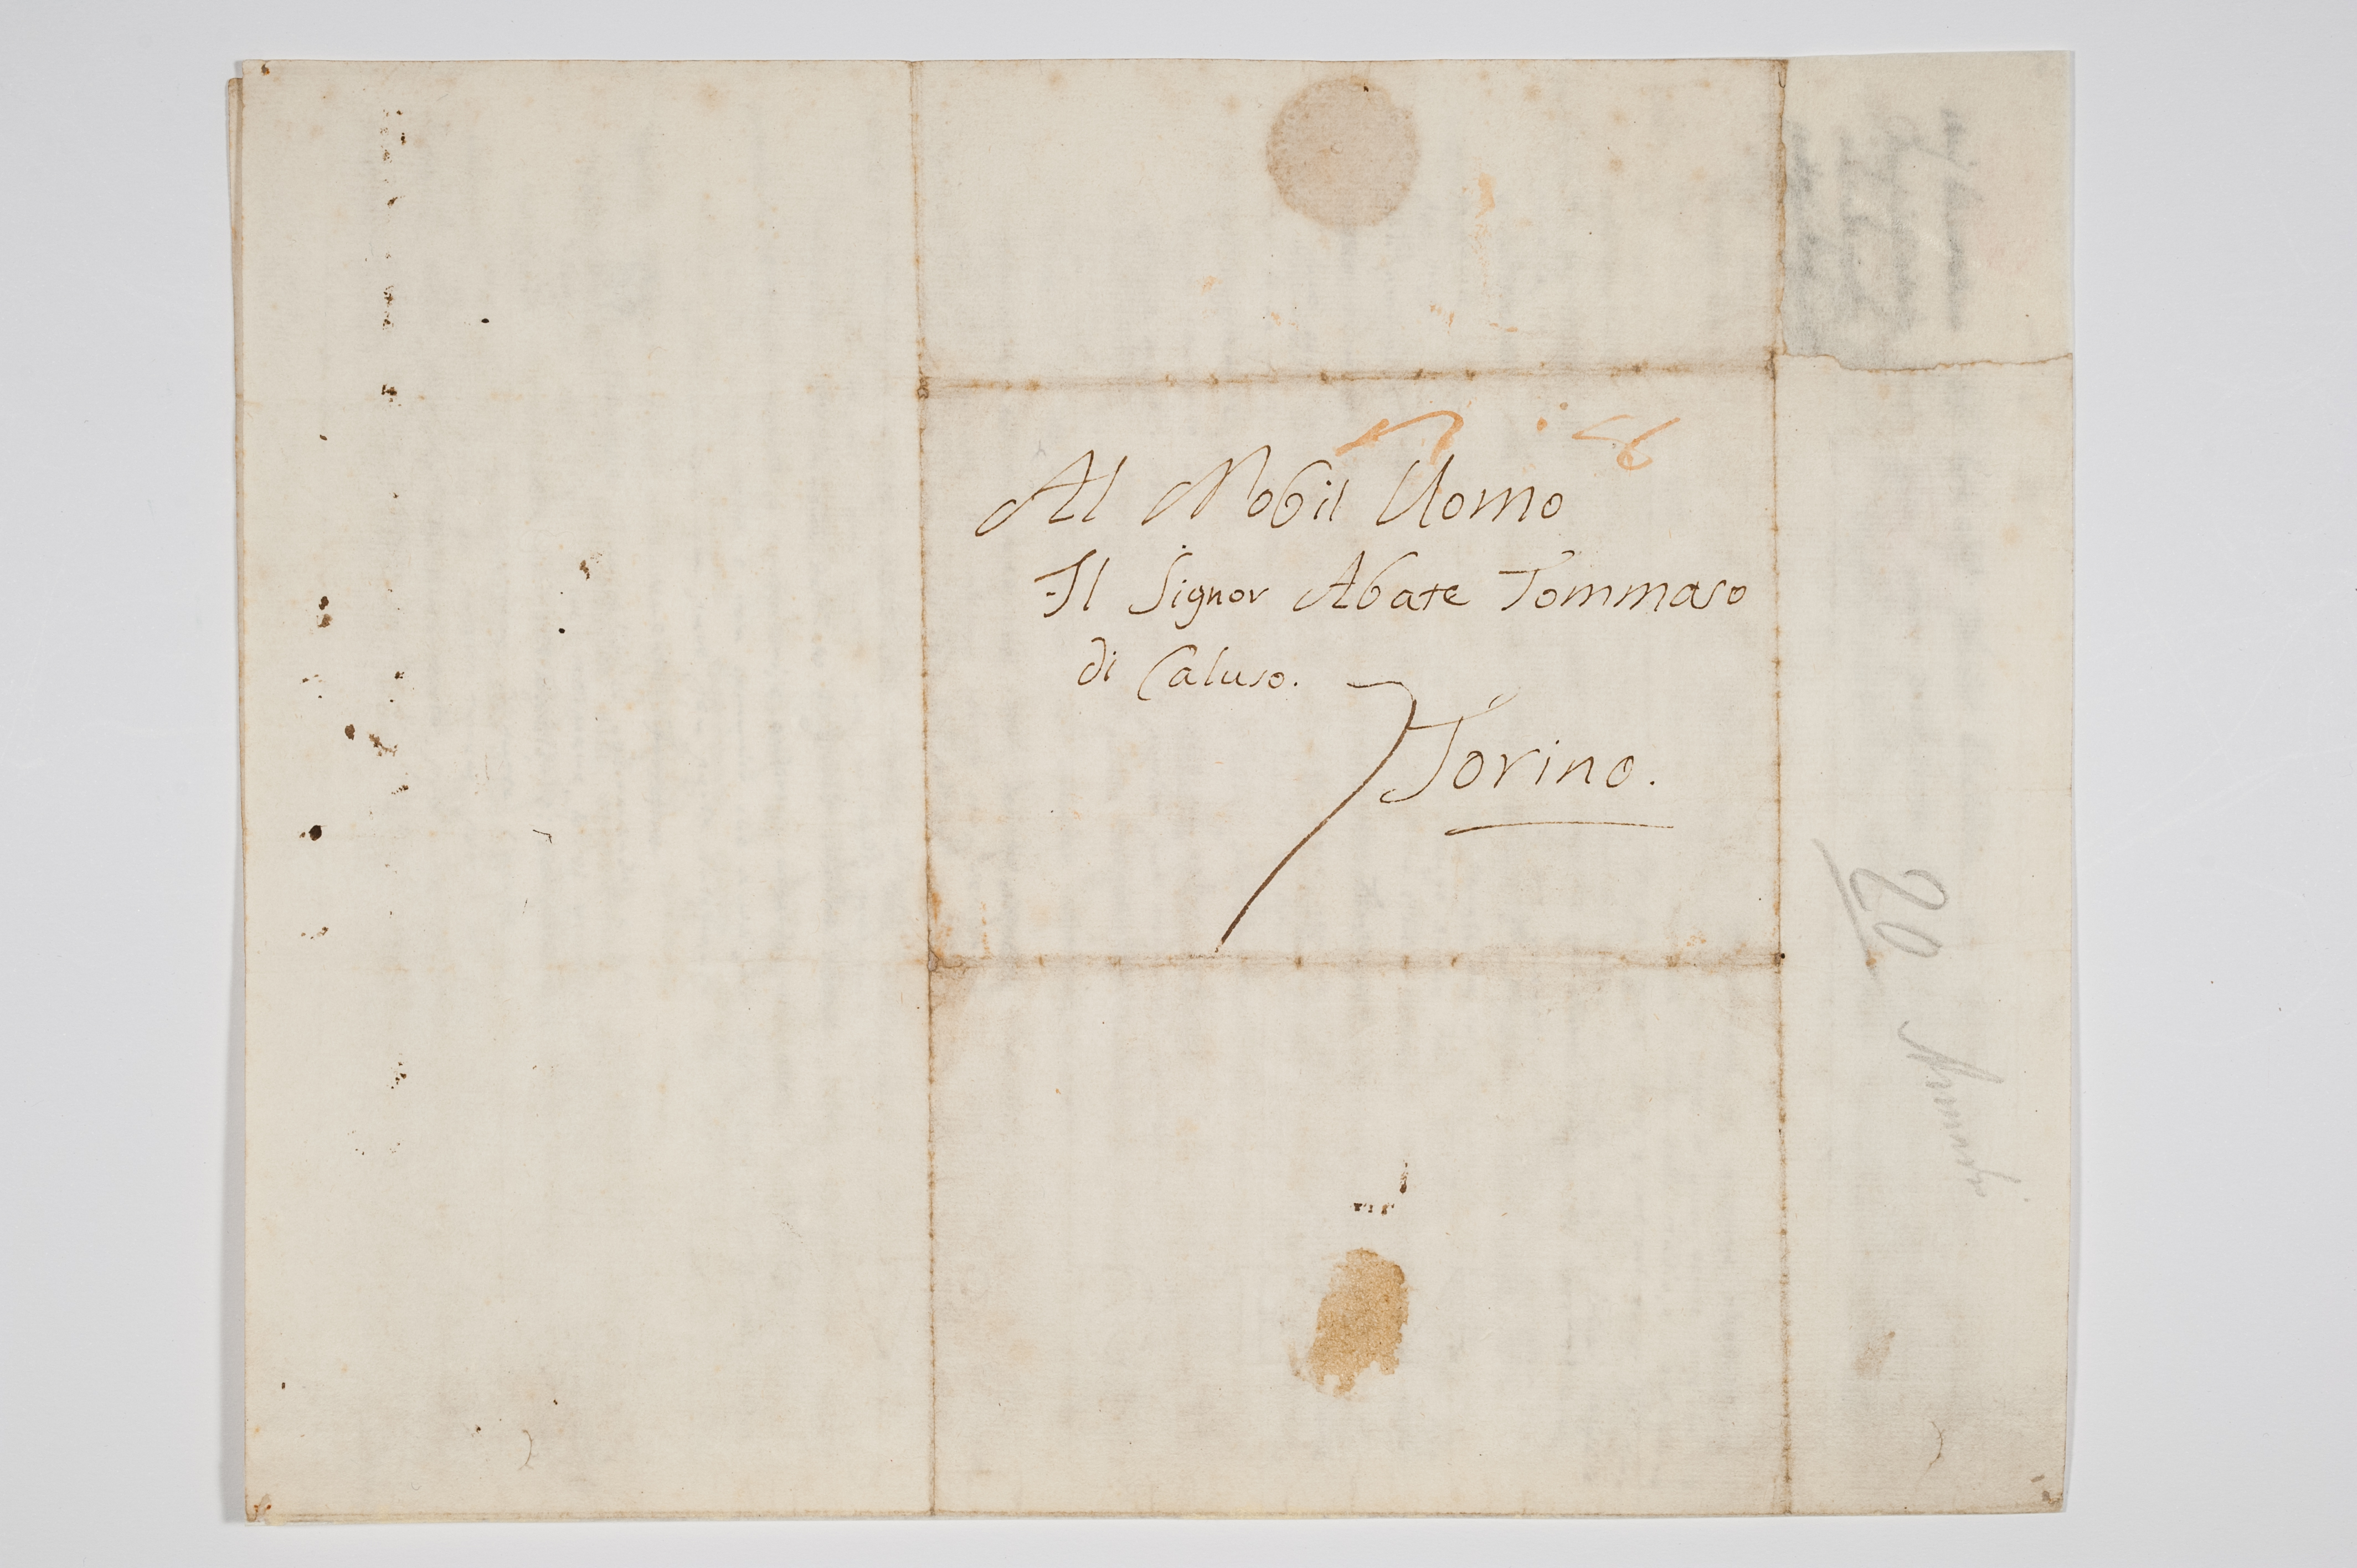 Al Nobil Uomo
Il Signor Abate Tommaso
di Caluso.
Torino.
20